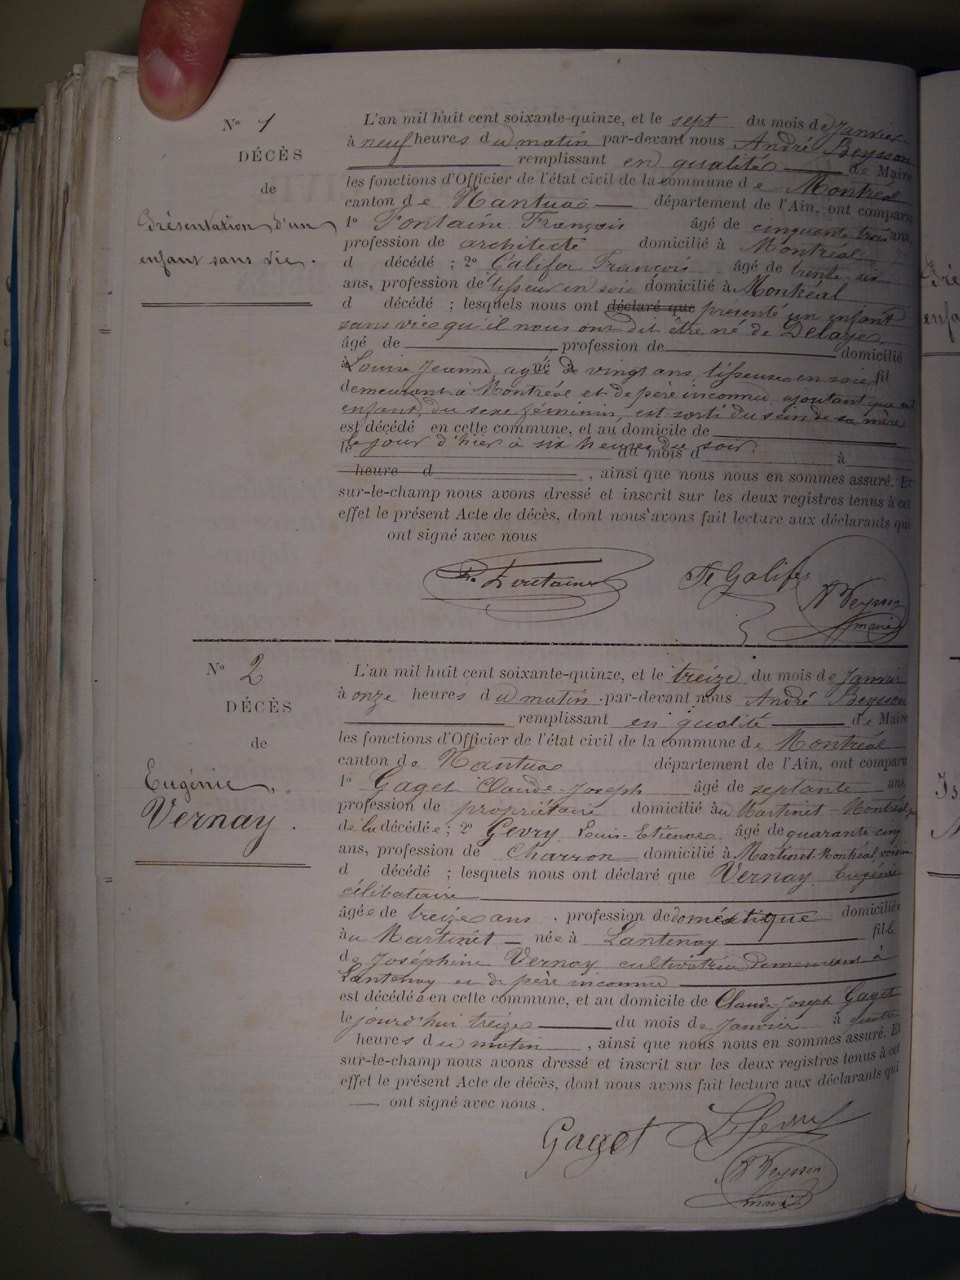 N° 1
DÉCÈS
de
Présentation d'un
enfant sans vie.
L'an mil huit cent soixante-quinze, et le sept du mois de Janvier
à neuf heures du matin par-devant nous André Beysson
remplissant en qualité de Maire
les fonctions d'Officier de l'état civil de la commune de Montréal
canton de Nantua département de l'Ain, ont comparu
1° Fontaine François âgé de cinquante trois ans,
profession de architecte domicilié à Montréal
d décédé ; 2° Galifer François âgé de trente six
ans, profession de tisseur en soie domicilié à Montréal
d décédé ; lesquels nous ont déclaré que présenté un enfant
sans vie qu'il nous ont dit être né de Delaye
âgé de profession de domicilié
à Louise Jeanne, agée de vingt ans, tisseuse en soie, fil
demeurant à Montréal et de père inconnu, ajoutant que cet
enfant, du sexe féminin, est sorti du sein de sa mère
est décédé en cette commune, et au domicile de
le jour d'hier à six heures du soir.
le du mois d à
heure d , ainsi que nous nous en sommes assuré. Et
sur-le-champ nous avons dressé et inscrit sur les deux registres tenus à cet
effet le présent Acte de décès, dont nous avons fait lecture aux déclarants qui
ont signé avec nous
F. Fontaine Fs Galifer A Beysson
maire
N° 2
DÉCÈS
de
Eugénie
Vernay.
L'an mil huit cent soixante-quinze, et le treize du mois de Janvier
à onze heures du matin par-devant nous André Beysson
remplissant en qualité de Maire
les fonctions d'Officier de l'état civil de la commune de Montréal
canton de Nantua département de l'Ain, ont comparu
1° Gaget Claude-Joseph âgé de septante ans,
profession de propriétaire domicilié au Martinet-Montréal
de la décédée ; 2° Gevry Louis-Etienne âgé de quarante cinq
ans, profession de Charron domicilié à Martinet-Montréal, voisin
d décédé ; lesquels nous ont déclaré que Vernay Eugénie
célibataire
âgée de treize ans, profession de domestique domiciliée
au Martinet née à Lantenay fille
de Joséphine Vernay cultivatrice demeurant à
Lantenay et de père inconnu
est décédée en cette commune, et au domicile de Claude Joseph Gaget
le jourd'hui treize du mois de Janvier à quatre
heures du matin , ainsi que nous nous en sommes assuré. Et
sur-le-champ nous avons dressé et inscrit sur les deux registres tenus à cet
effet le présent Acte de décès, dont nous avons fait lecture aux déclarants qui
ont signé avec nous.
Gaget L Gevry
A Beysson
maire